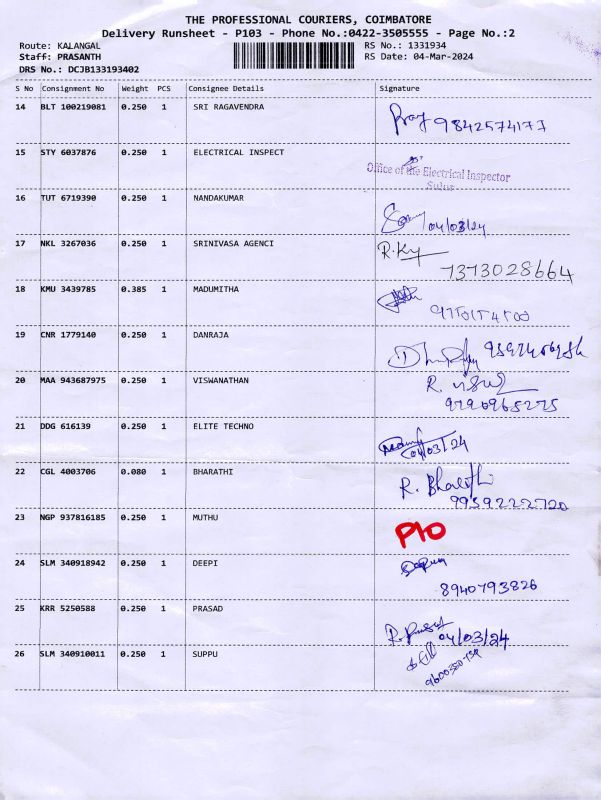 THE PROFESSIONAL COURIERS, COIMBATORE
Delivery Runsheet - P103 - Phone No.:0422-3505555 - Page No.:2
Route: KALANGAL
RS No.: 1331934
Staff: PRASANTH
RS Date: 04-Mar-2024
DRS No.: DCJB133193402
S No Consignment No Weight PCS Consignee Details Signature
14 BLT 100219081 0.250 1 SRI RAGAVENDRA
9842574177
15 STY 6037876 0.250 1 ELECTRICAL INSPECT
Office of the Electrical Inspector
Sulur
16 TUT 6719390 0.250 1 NANDAKUMAR
04/03/24
17 NKL 3267036 0.250 1 SRINIVASA AGENCI R.Ky
7373028664
18 KMU 3439785 0.385 1 MADUMITHA
19 CNR 1779140 0.250 1 DANRAJA
20 MAA 943687975 0.250 1 VISWANATHAN
9790965275
21 DDG 616139 0.250 1 ELITE TECHNO
04/03/24
22 CGL 4003706 0.080 1 BHARATHI R. Bharathi
9959222720
23 NGP 937816185 0.250 1 MUTHU P10
24 SLM 340918942 0.250 1 DEEPI
8940793826
25 KRR 5250588 0.250 1 PRASAD
04/03/24
26 SLM 340910011 0.250 1 SUPPU